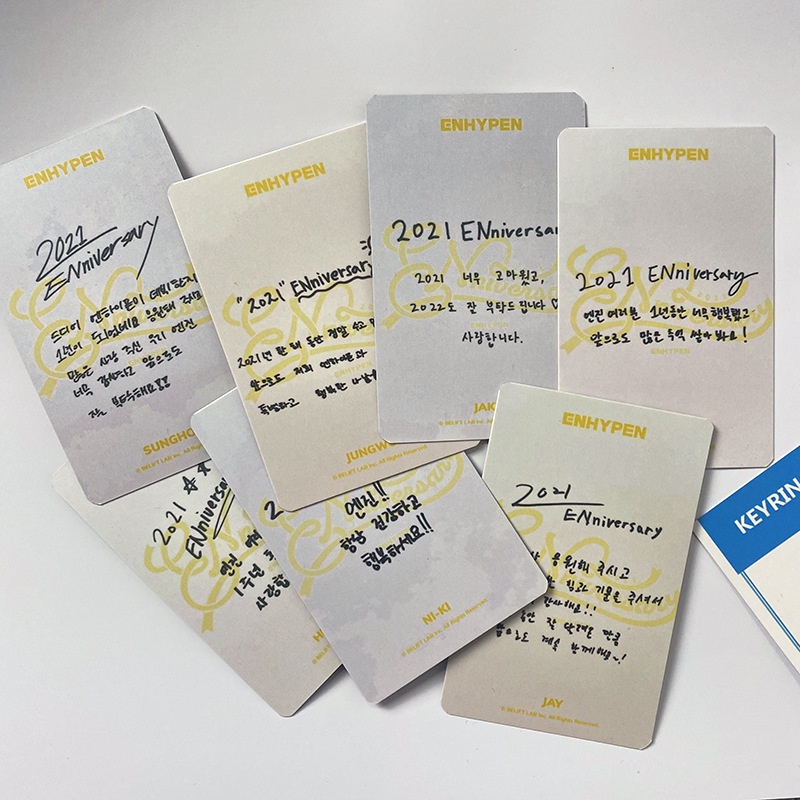 ENHYPEN
2021
ENniversary
드디어 엔하이픈이 데뷔한지
1년이 되었네요 응원해 주시고
많은 사랑 주신 우리 엔진
너무 감사하고 앞으로도
잘 부탁해요!!
SUNGHO
© BELIFT LAB Inc. All Rights Reserved.
ENHYPEN
"2021" ENniversary
2021년 한 해 동안 정말 수고
앞으로도 저희 엔하이픈과
특별하고 행복한 나날
JUNGW
© BELIFT LAB Inc. All Rights Reserved.
ENHYPEN
2021 ENniversa
2021 너무 고마웠고,
2022도 잘 부탁드립니다 ♡
사랑합니다.
JAK
© BELIFT LAB Inc. All Rights Reserved.
ENHYPEN
2021 ENniversary
엔진 여러분 1년동안 너무 행복했고
앞으로도 많은 추억 쌓아봐요!
ENHYPEN
2021 ☆☆
ENniversary
엔진 여러
1주년
사랑합
H
엔진!!
항상 건강하고
행복하세요!!
NI-KI
© BELIFT LAB Inc. All Rights Reserved.
ENHYPEN
2021
ENniversary
응원해 주시고
힘과 기쁨을 주셔서
감사해요!!
잘 달려온 만큼
앞으로도 계속 함께해요~!
JAY
© BELIFT LAB Inc. All Rights Reserved.
KEYRIN